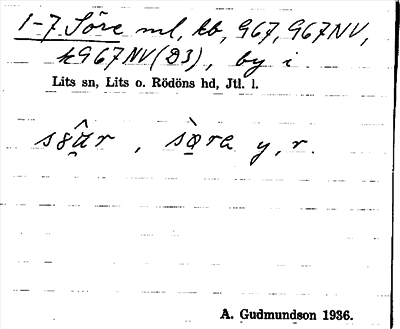 1-7 Söre ml, kb, 967, 967NV,
k967NV(D3), by i
Lits sn, Lits o. Rödöns hd, Jtl. l.
, sǫ̀ra y, r.
A. Gudmundson 1936.